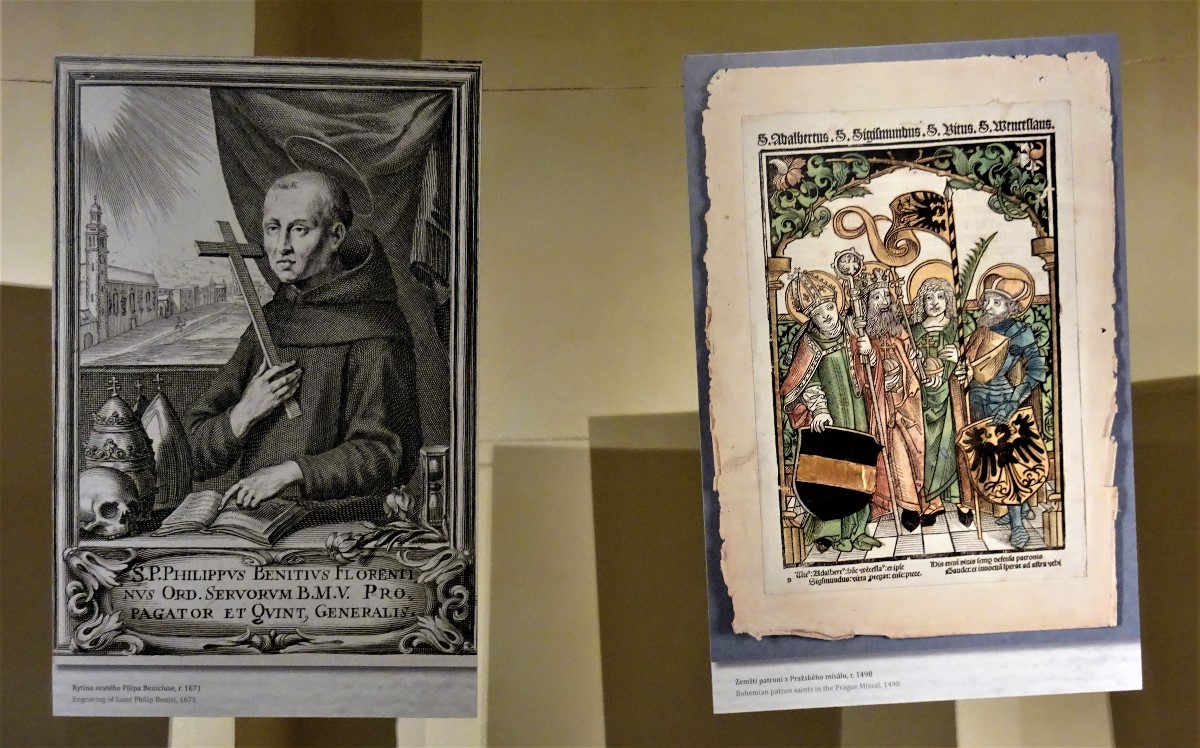 S.P. PHILIPPVS BENITIVS FLORENTI
NVS ORD. SERVORVM B.M.V. PRO,
PAGATOR ET QVINT, GENERALIS.
Rytina svatého Filipa Beniciuse, r. 1671
Engraving of Saint Philip Benizi, 1671
S. Adalbertus. S. Sigismundus. S. Vitus. S. Wenceslaus.
Sigismundus:
Zemští patroni z Pražského misálu, r. 1498
Bohemian patron saints in the Prague Missal, 1498